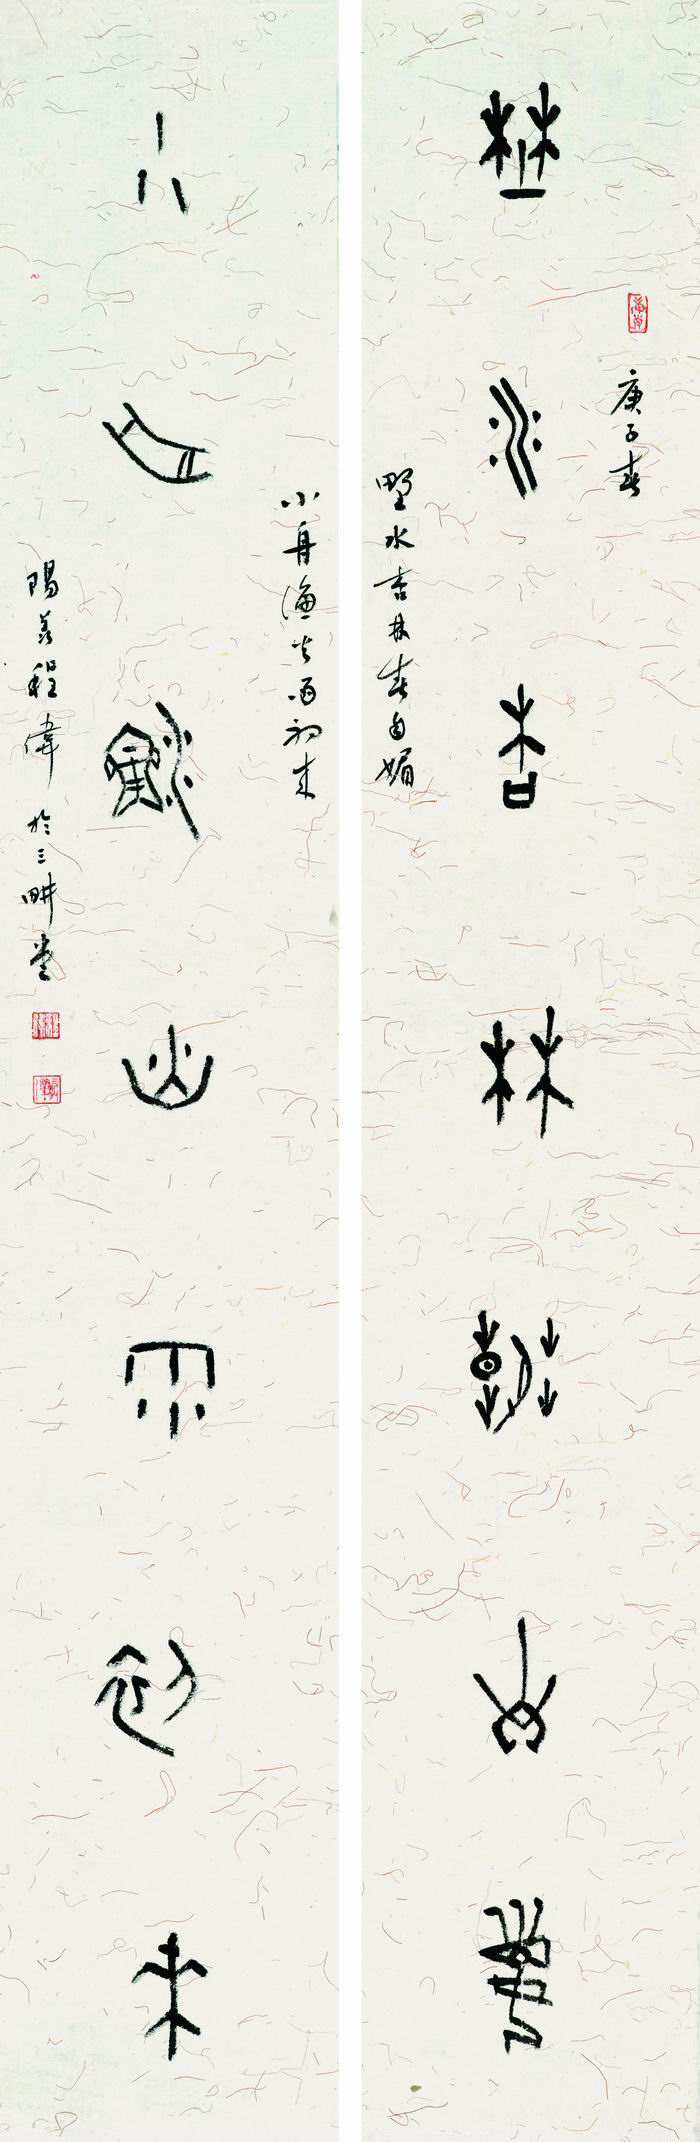 庚子春
埜水杏林春自媚
野水杏林春自媚
小舟漁火雨初来
小舟漁火雨初來
陽羡程偉於三畊堂